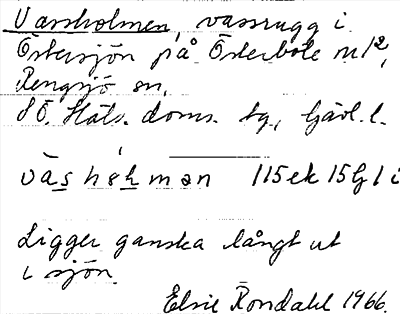 Vassholmen, vassrugg i
Östersjön på Österbote m/2,
Rengsjö sn,
SÖ. Häls. doms. tg, Gävl. l.
vàshɵlmən 115ek 15G 1 i
Ligger ganska långt ut
i sjön.
Elsie Rondahl 1966.